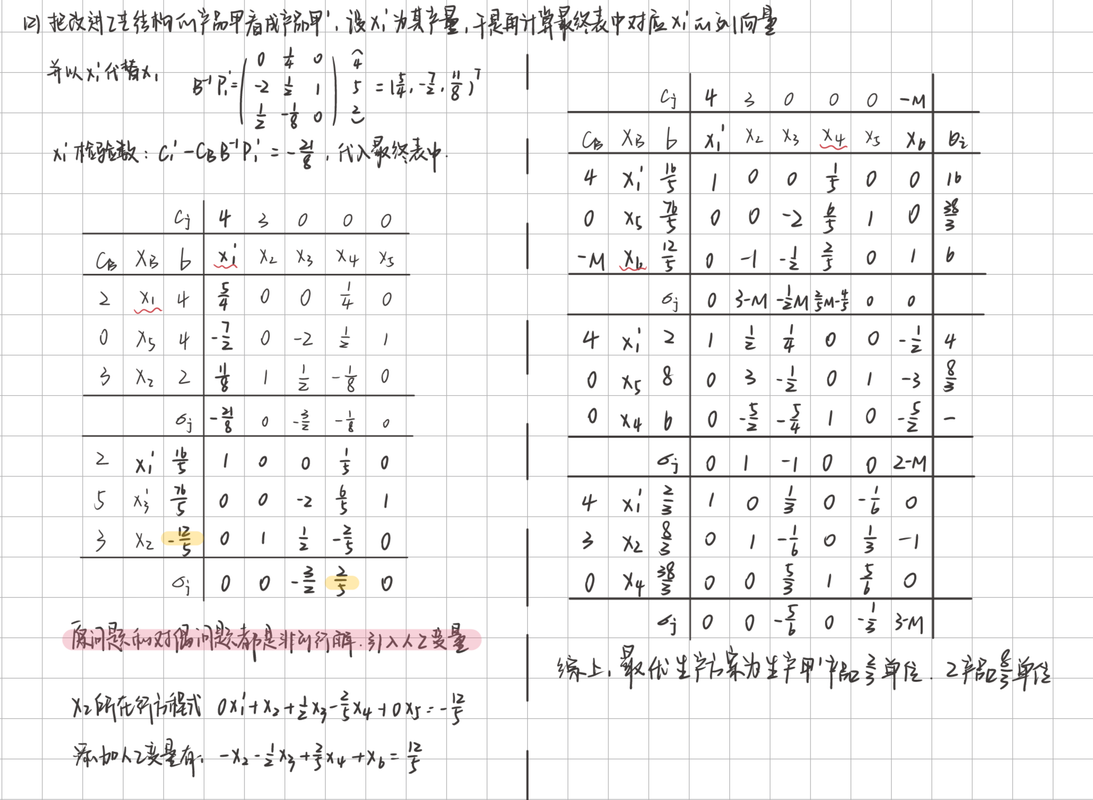 (2) 把改进工艺结构的产品甲看成产品甲', 设x₁'为其产量, 于是再计算最终表中对应x₁'的列向量
并以x₁'代替x₁
0 1/4 0 4
B⁻¹P₁' = -2 1/2 1 5 = (5/4, -7/2, 11/8)ᵀ
1/2 -1/8 0 2
x₁'检验数: C₁' - C_B B⁻¹P₁' = -21/8, 代入最终表中.
Cj 4 3 0 0 0
C_B X_B b x₁' x₂ x₃ x₄ x₅
2 x₁ 4 5/4 0 0 1/4 0
0 x₅ 4 -7/2 0 -2 1/2 1
3 x₂ 2 11/8 1 1/2 -1/8 0
σj -21/8 0 -3/2 -1/8 0
2 x₁' 16/5 1 0 0 1/5 0
5 x₃' 76/5 0 0 -2 6/5 1
3 x₂ -12/5 0 1 1/2 -2/5 0
σj 0 0 -3/2 2/5 0
原问题和对偶问题都是非可行解.引入人工变量
x₂所在行方程式 0x₁'+x₂+1/2x₃-2/5x₄+0x₅=-12/5
添加人工变量有: -x₂-1/2x₃+2/5x₄+x₆=12/5
Cj 4 3 0 0 0 -M
C_B X_B b x₁' x₂ x₃ x₄ x₅ x₆ θi
4 x₁' 16/5 1 0 0 1/5 0 0 16
0 x₅ 76/5 0 0 -2 6/5 1 0 38/3
-M x₆ 12/5 0 -1 -1/2 2/5 0 1 6
σj 0 3-M -1/2M 2/5M-4/5 0 0
4 x₁' 2 1 1/2 1/4 0 0 -1/2 4
0 x₅ 8 0 3 -1/2 0 1 -3 8/3
0 x₄ 6 0 -5/2 -5/4 1 0 -5/2 -
σj 0 1 -1 0 0 2-M
4 x₁' 2/3 1 0 1/3 0 -1/6 0
3 x₂ 8/3 0 1 -1/6 0 1/3 -1
0 x₄ 38/3 0 0 5/3 1 5/6 0
σj 0 0 -5/6 0 -1/3 3-M
综上, 最优生产方案为生产甲'产品2/3单位. 乙产品8/3单位